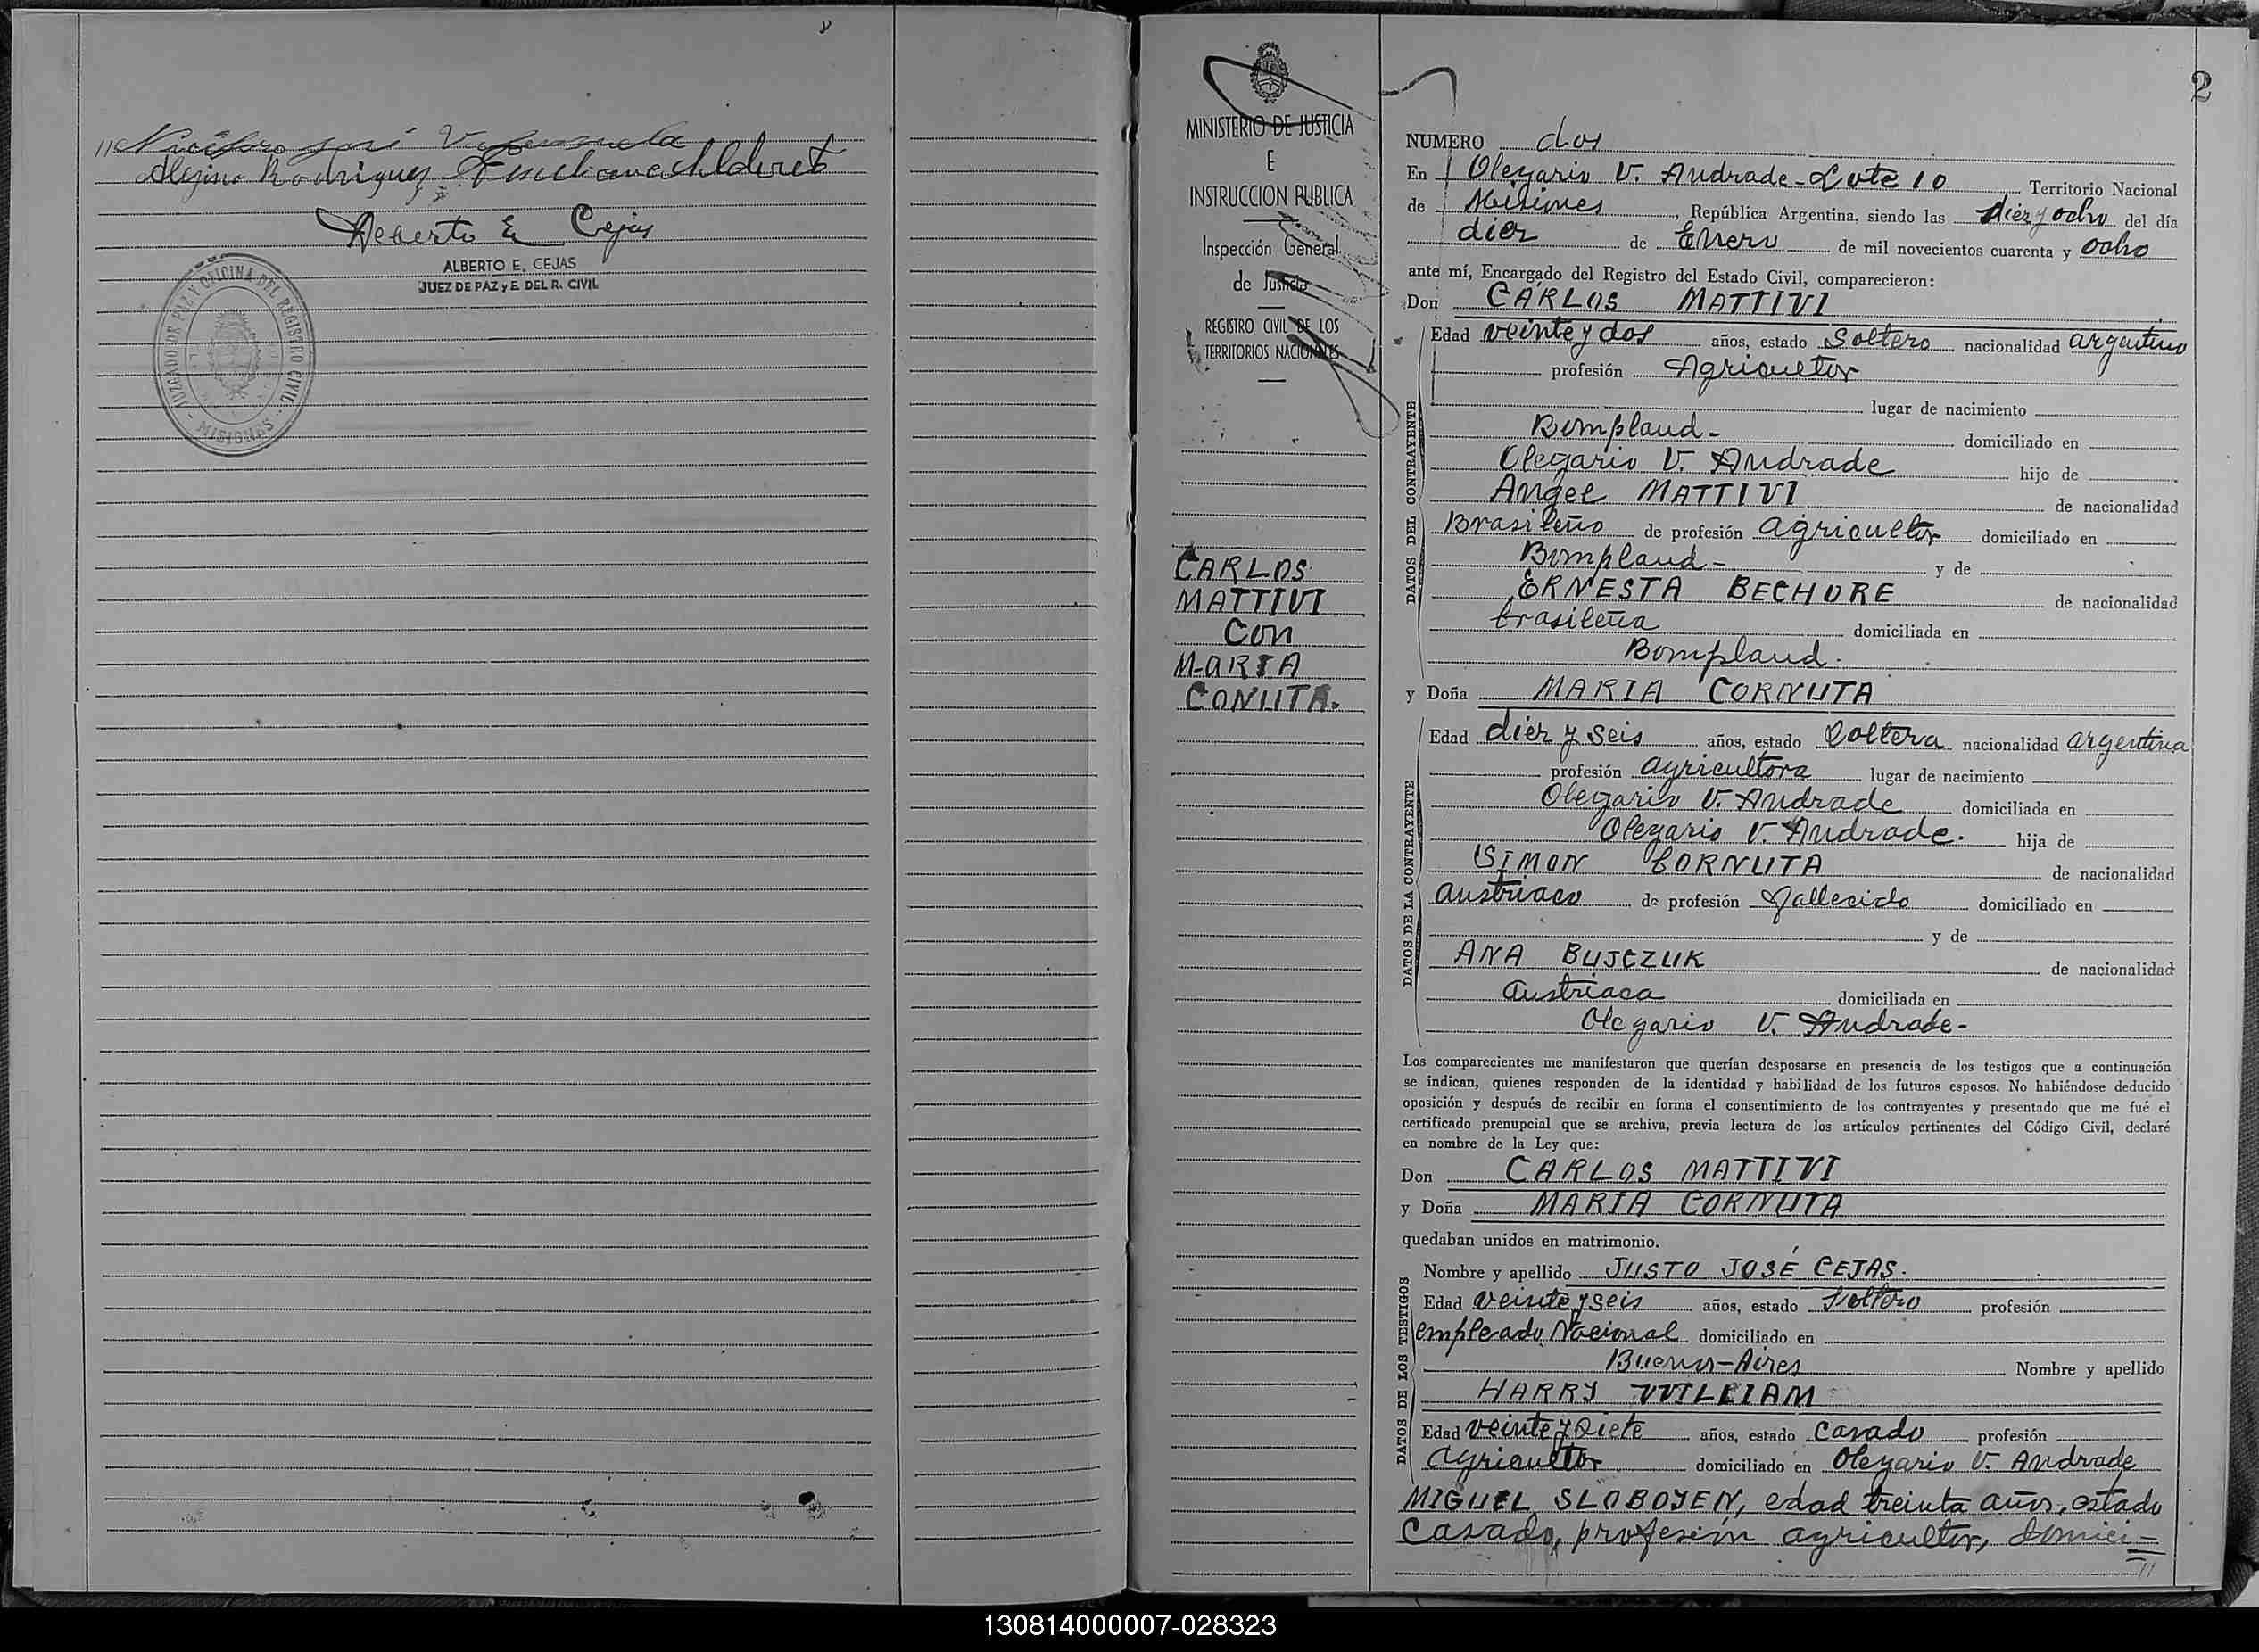 Alejino Rodriguez
Alberto E. Cejas
ALBERTO E. CEJAS
JUEZ DE PAZ y E. DEL R. CIVIL
JUZGADO DE PAZ Y OFICINA DEL REGISTRO CIVIL
MISIONES
MINISTERIO DE JUSTICIA
E
INSTRUCCION PUBLICA
Inspección General
de Justicia
REGISTRO CIVIL DE LOS
TERRITORIOS NACIONALES
CARLOS
MATTIVI
CON
MARIA
CONUTA.
2
NUMERO dos
En Olegario V. Andrade - Lote 10 Territorio Nacional
de Misiones, República Argentina, siendo las diez y ocho del día
diez de Enero de mil novecientos cuarenta y ocho
ante mí, Encargado del Registro del Estado Civil, comparecieron:
Don CARLOS MATTIVI
DATOS DEL CONTRAYENTE
Edad veinte y dos años, estado Soltero nacionalidad argentino
profesión Agricultor
lugar de nacimiento
Bompland - domiciliado en
Olegario V. Andrade hijo de
Angel MATTIVI de nacionalidad
Brasileño de profesión agricultor domiciliado en
Bompland - y de
ERNESTA BECHORE de nacionalidad
brasileña domiciliada en
Bompland.
y Doña MARIA CORNUTA
DATOS DE LA CONTRAYENTE
Edad diez y seis años, estado Soltera nacionalidad argentina
profesión agricultora lugar de nacimiento
Olegario V. Andrade domiciliada en
Olegario V. Andrade. hija de
SIMON CORNUTA de nacionalidad
austriaco de profesión Fallecido domiciliado en
y de
ANA BUJCZUK de nacionalidad
Austriaca domiciliada en
Olegario V. Andrade -
Los comparecientes me manifestaron que querían desposarse en presencia de los testigos que a continuación
se indican, quienes responden de la identidad y habilidad de los futuros esposos. No habiéndose deducido
oposición y después de recibir en forma el consentimiento de los contrayentes y presentado que me fué el
certificado prenupcial que se archiva, previa lectura de los artículos pertinentes del Código Civil, declaré
en nombre de la Ley que:
Don CARLOS MATTIVI
y Doña MARIA CORNUTA
quedaban unidos en matrimonio.
DATOS DE LOS TESTIGOS
Nombre y apellido JUSTO JOSÉ CEJAS.
Edad veinte y seis años, estado Soltero profesión
empleado Nacional domiciliado en
Buenos-Aires Nombre y apellido
HARRY WILLIAM
Edad veinte y siete años, estado Casado profesión
Agricultor domiciliado en Olegario V. Andrade
MIGUEL SLOBOYEN, edad treinta años, estado
Casado, profesión agricultor, domici=
//
130814000007-028323